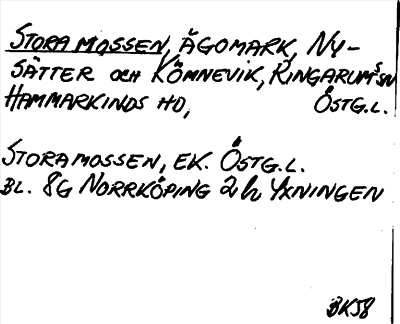 STORA MOSSEN, ÅGOMARK, NY-
SÄTTER OCH KÖMNEVIK, RINGARUMS SN
HAMMARKINDS HD, ÖSTG.L.
STORAMOSSEN, EK. ÖSTG.L.
BL. 8G NORRKÖPING 2h YXNINGEN
BK58